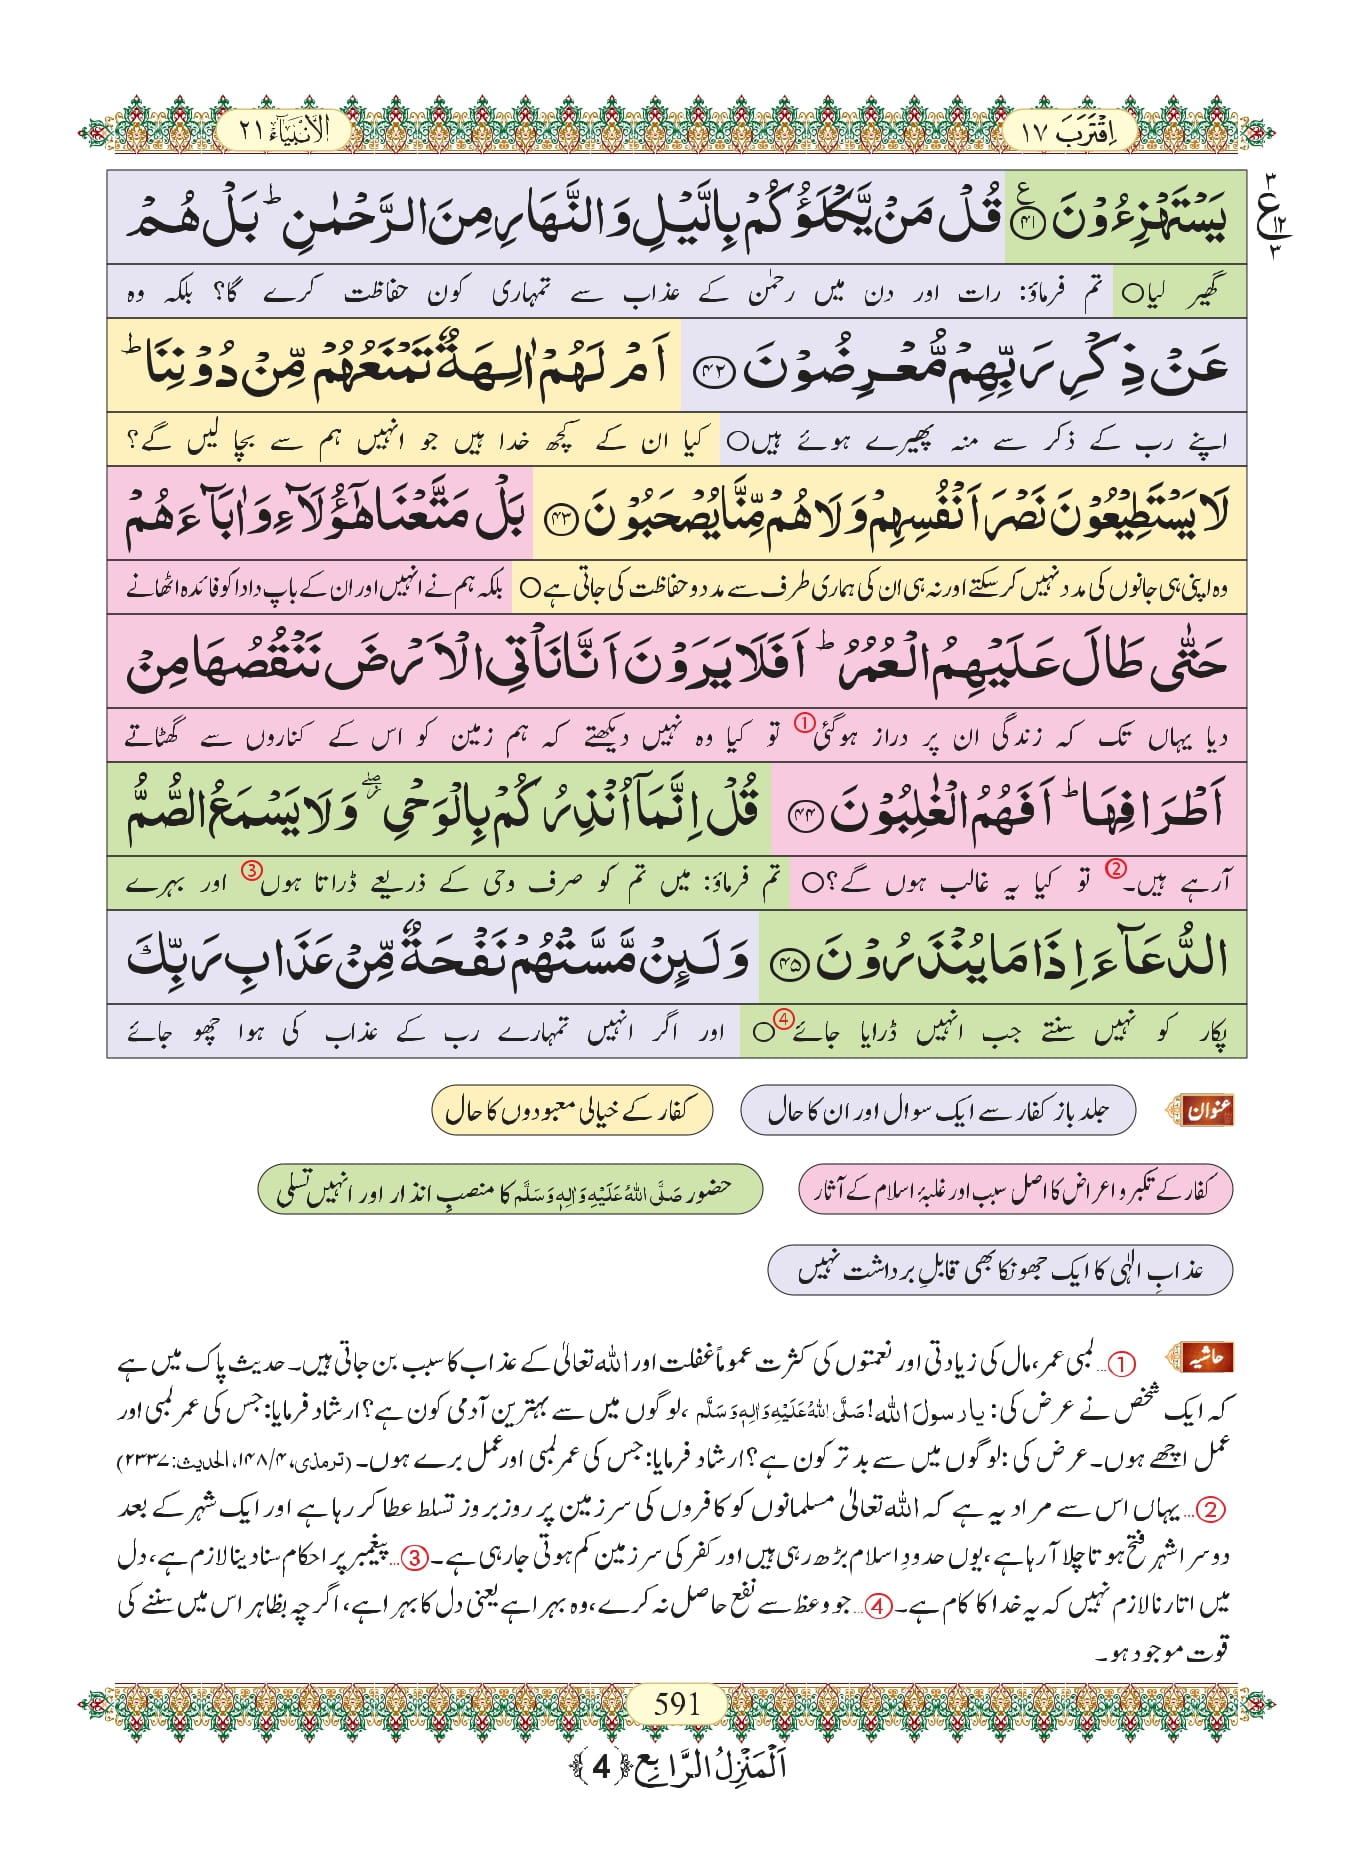 اِقْتَرَبَ ١٧
الْاَنْۢبِيَآء ٢١
٣
ع
١٢
٣
يَسْتَهْزِءُوْنَ ﴿۴۱﴾ع قُلْ مَنْ يَّكْلَؤُكُمْ بِالَّيْلِ وَالنَّهَارِ مِنَ الرَّحْمٰنِ ؕ بَلْ هُمْ
گھیر لیا○ تم فرماؤ: رات اور دن میں رحمٰن کے عذاب سے تمہاری کون حفاظت کرے گا؟ بلکہ وہ
عَنْ ذِكْرِ رَبِّهِمْ مُّعْرِضُوْنَ ﴿۴۲﴾ اَمْ لَهُمْ اٰلِهَةٌ تَمْنَعُهُمْ مِّنْ دُوْنِنَا ؕ
اپنے رب کے ذکر سے منہ پھیرے ہوئے ہیں○ کیا ان کے کچھ خدا ہیں جو انہیں ہم سے بچا لیں گے؟
لَا يَسْتَطِيْعُوْنَ نَصْرَ اَنْفُسِهِمْ وَلَا هُمْ مِّنَّا يُصْحَبُوْنَ ﴿۴۳﴾ بَلْ مَتَّعْنَا هٰۤؤُلَآءِ وَاٰبَآءَهُمْ
وہ اپنی ہی جانوں کی مدد نہیں کر سکتے اور نہ ہی ان کی ہماری طرف سے مدد و حفاظت کی جاتی ہے○ بلکہ ہم نے انہیں اور ان کے باپ دادا کو فائدہ اٹھانے
حَتّٰى طَالَ عَلَيْهِمُ الْعُمُرُ ؕ اَفَلَا يَرَوْنَ اَنَّا نَاْتِي الْاَرْضَ نَنْقُصُهَا مِنْ
دیا یہاں تک کہ زندگی ان پر دراز ہوگئی① تو کیا وہ نہیں دیکھتے کہ ہم زمین کو اس کے کناروں سے گھٹاتے
اَطْرَافِهَا ؕ اَفَهُمُ الْغٰلِبُوْنَ ﴿۴۴﴾ قُلْ اِنَّمَاۤ اُنْذِرُكُمْ بِالْوَحْيِ ۖ٘ وَلَا يَسْمَعُ الصُّمُّ
آرہے ہیں۔② تو کیا یہ غالب ہوں گے؟○ تم فرماؤ: میں تم کو صرف وحی کے ذریعے ڈراتا ہوں③ اور بہرے
الدُّعَآءَ اِذَا مَا يُنْذَرُوْنَ ﴿۴۵﴾ وَلَئِنْ مَّسَّتْهُمْ نَفْحَةٌ مِّنْ عَذَابِ رَبِّكَ
پکار کو نہیں سنتے جب انہیں ڈرایا جائے④○ اور اگر انہیں تمہارے رب کے عذاب کی ہوا چھو جائے
عنوان جلد باز کفار سے ایک سوال اور ان کا حال کفار کے خیالی معبودوں کا حال
کفار کے تکبر و اعراض کا اصل سبب اور غلبۂ اسلام کے آثار حضور صَلَّی اللہُ عَلَیْہِ وَاٰلِہٖ وَسَلَّم کا منصبِ انذار اور انہیں تسلی
عذابِ الٰہی کا ایک جھونکا بھی قابلِ برداشت نہیں
حاشیہ ①… لمبی عمر، مال کی زیادتی اور نعمتوں کی کثرت عموماً غفلت اور اللہ تعالیٰ کے عذاب کا سبب بن جاتی ہیں۔ حدیث پاک میں ہے
کہ ایک شخص نے عرض کی: یا رسولَ اللہ! صَلَّی اللہُ عَلَیْہِ وَاٰلِہٖ وَسَلَّم، لوگوں میں سے بہترین آدمی کون ہے؟ ارشاد فرمایا: جس کی عمر لمبی اور
عمل اچھے ہوں۔ عرض کی: لوگوں میں سے بدتر کون ہے؟ ارشاد فرمایا: جس کی عمر لمبی اور عمل برے ہوں۔ (ترمذی، ۴/۱۴۸، الحدیث: ۲۳۳۷)
②… یہاں اس سے مراد یہ ہے کہ اللہ تعالیٰ مسلمانوں کو کافروں کی سرزمین پر روز بروز تسلط عطا کر رہا ہے اور ایک شہر کے بعد
دوسرا شہر فتح ہوتا چلا آرہا ہے، یوں حدودِ اسلام بڑھ رہی ہیں اور کفر کی سرزمین کم ہوتی جارہی ہے۔ ③… پیغمبر پر احکام سنا دینا لازم ہے، دل
میں اتارنا لازم نہیں کہ یہ خدا کا کام ہے۔ ④… جو وعظ سے نفع حاصل نہ کرے، وہ بہرا ہے یعنی دل کا بہرا ہے، اگرچہ بظاہر اس میں سننے کی
قوت موجود ہو۔
591
اَلْمَنْزِلُ الرَّابِع ﴿4﴾